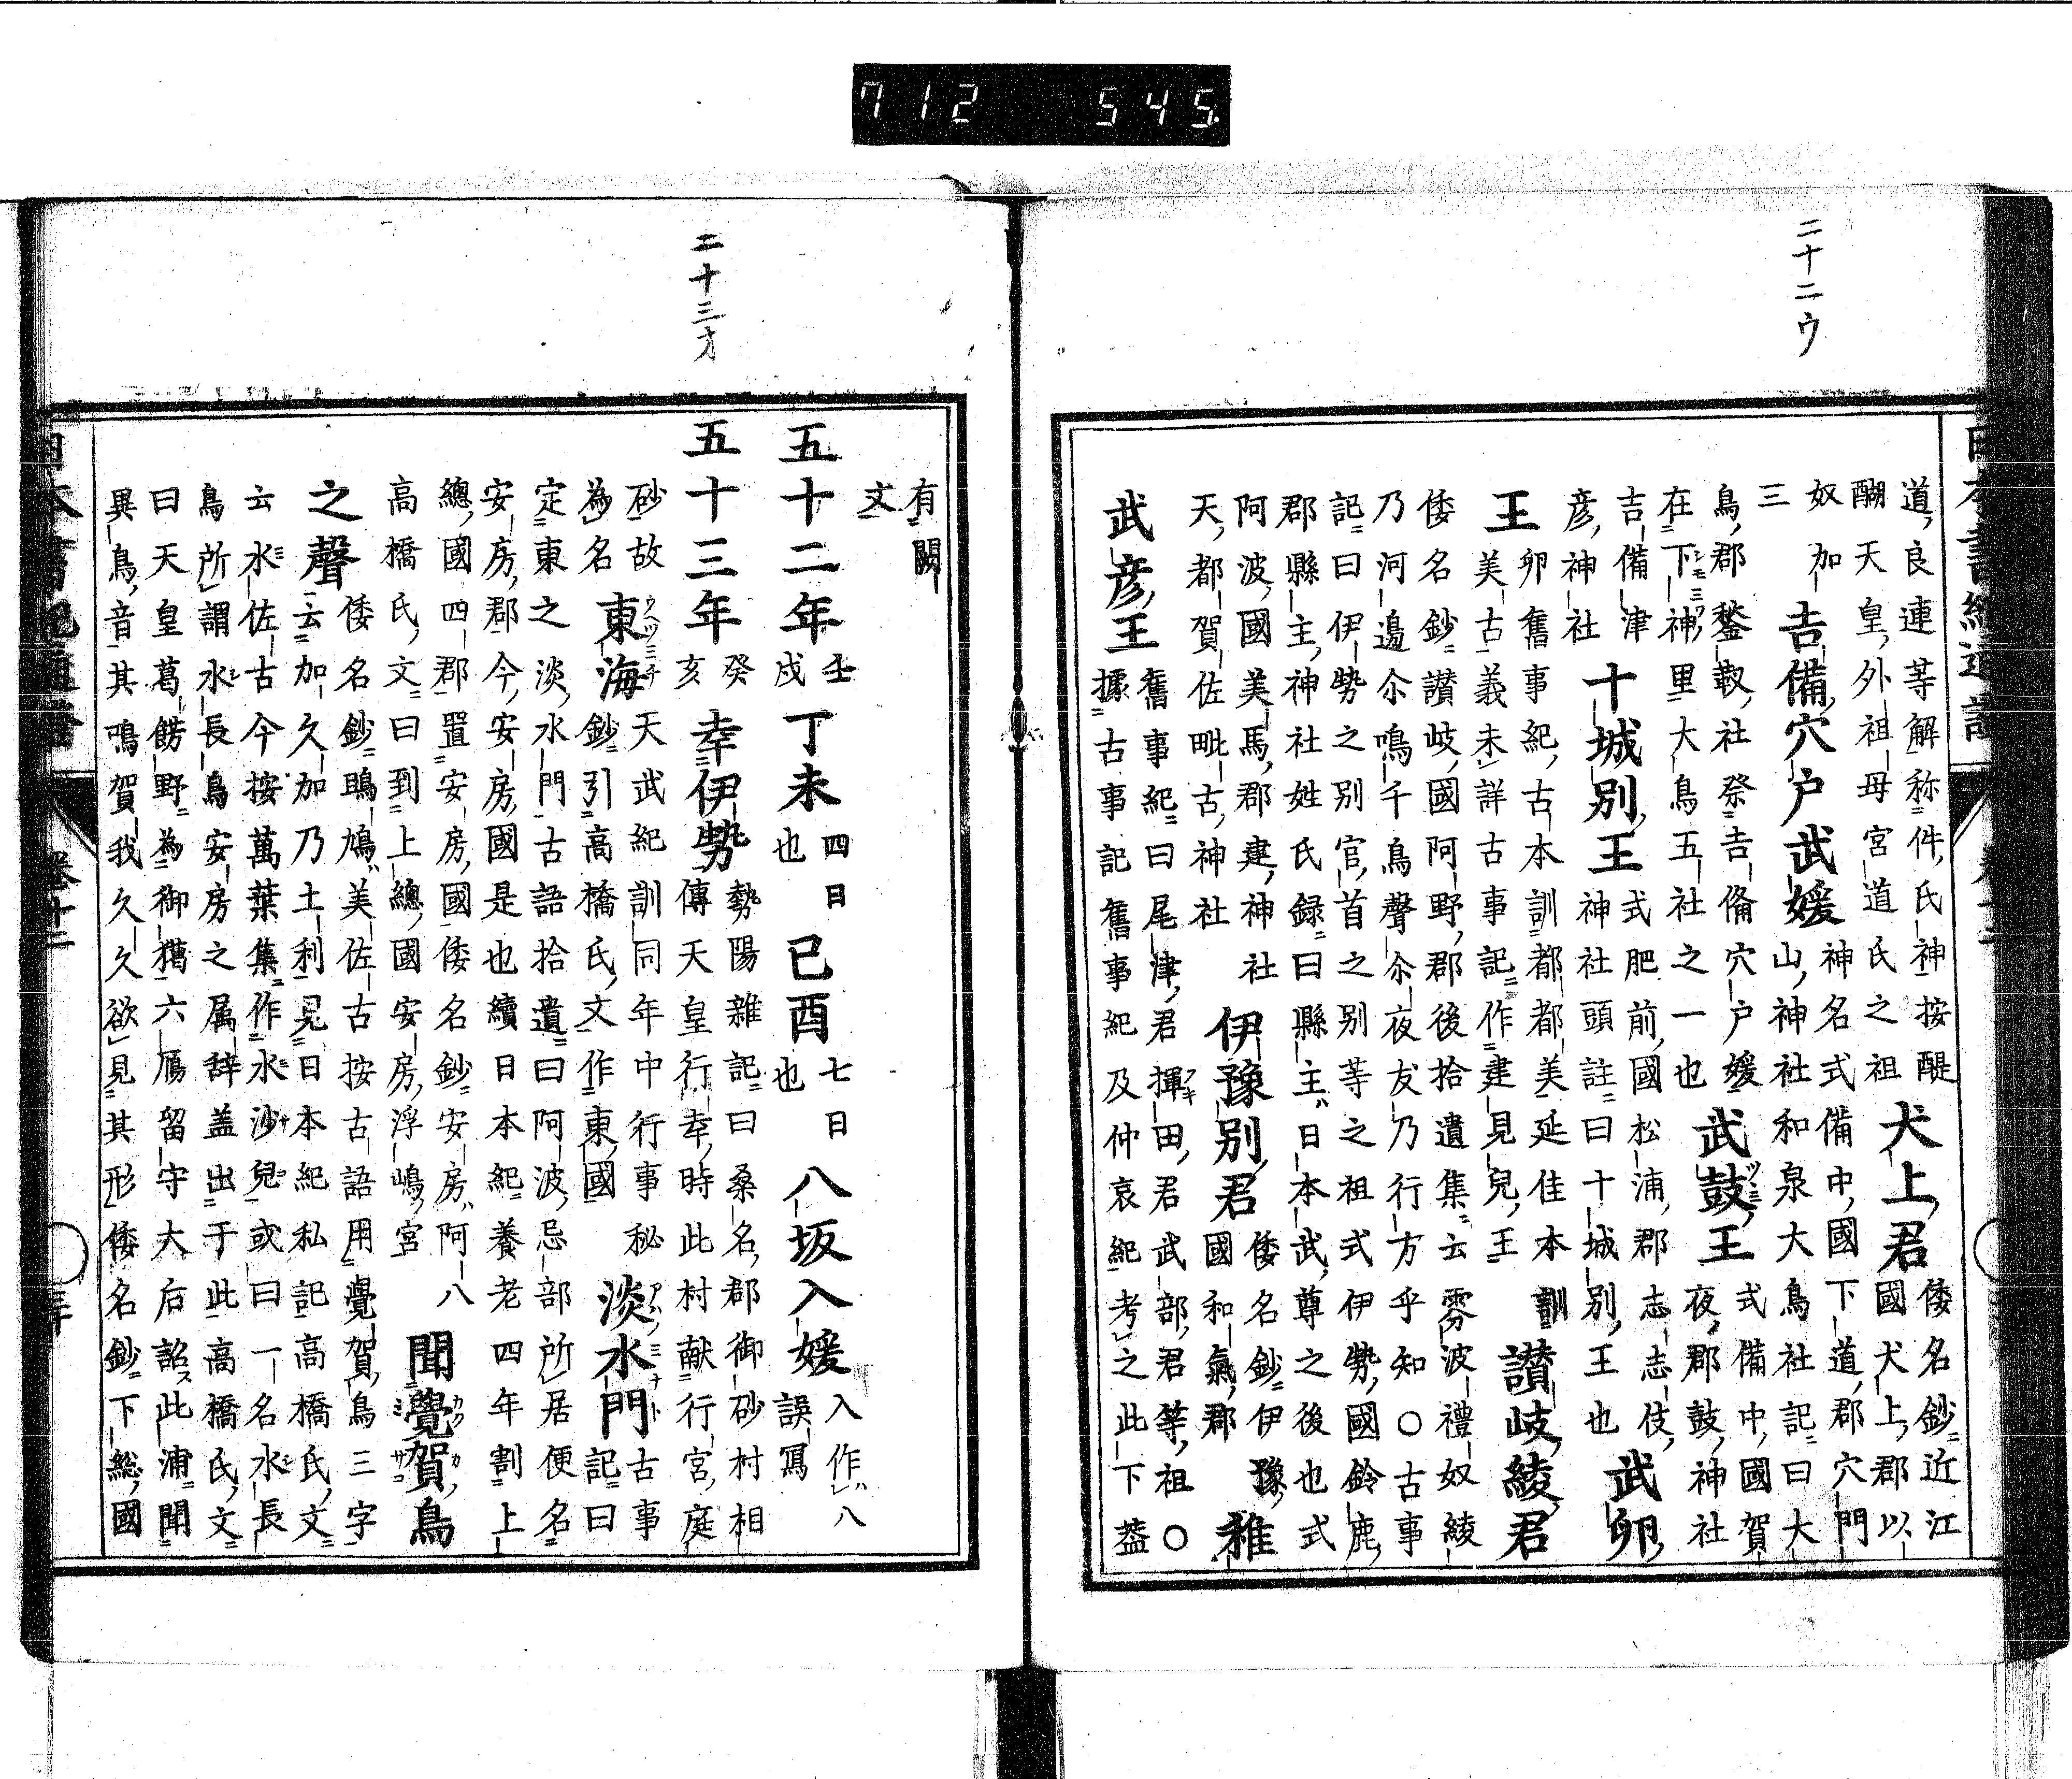 712 545.
二十二ウ
道良連等解称件氏神按醍
醐天皇外祖母宮道氏之祖
犬上君
倭名鈔近江
國犬上郡以
奴加
三
吉備穴戸武媛
神名式備中國下道郡穴門
山神社和泉大鳥社記曰大
鳥郡鍫靱社祭吉備穴戸媛
在下神里大鳥五社之一也
武鼓王
式備中國賀
夜郡鼓神社
吉備津
彦神社
十城別王
式肥前國松浦郡志志伎
神社社頭註曰十城別王也
武卵
王
卵舊事紀古本訓都都美延佳本訓
美古義未詳古事記作建見兒王
讃岐綾君
倭名鈔讃岐國阿野郡後拾遺集云雰波禮奴綾
乃河邊尒鳴千鳥聲尒夜友乃行方乎知○古事
記曰伊勢之別官首之別等之祖式伊勢國鈴鹿
郡縣主神社姓氏録曰縣主日本武尊之後也式
阿波國美馬郡建神社
天都賀佐毗古神社
伊豫別君
倭名鈔伊豫
國和氣郡
稚
武彦王
舊事紀曰尾津君揮田君武部君等祖○
據古事記舊事紀及仲哀紀考之此下葢
二十三オ
有闕
文
五十二年
壬
戌
丁未
四日
也
己酉
七日
也
八坂入媛
入作八
誤寫
五十三年
癸
亥
幸伊勢
勢陽雜記曰桑名郡御砂村相
傳天皇行幸時此村献行宮庭
砂故
為名
東海
天武紀訓同年中行事秘
鈔引高橋氏文作東國
淡水門
古事
記曰
定東之淡水門古語拾遺曰阿波忌部所居便名
安房郡今安房國是也續日本紀養老四年割上
總國四郡置安房國倭名鈔安房阿八
高橋氏文曰到上總國安房浮嶋宮
聞覺賀鳥
之聲
倭名鈔鵰鳩美佐古按古語用覺賀鳥三字
云加久加乃土利見日本紀私記高橋氏文
云水佐古今按萬葉集作水沙兒或曰一名水長
鳥所謂水長鳥安房之属辞盖出于此高橋氏文
曰天皇葛餝野為御獦六鴈留守大后詔此浦聞
異鳥音其鳴賀我久久欲見其形倭名鈔下総國